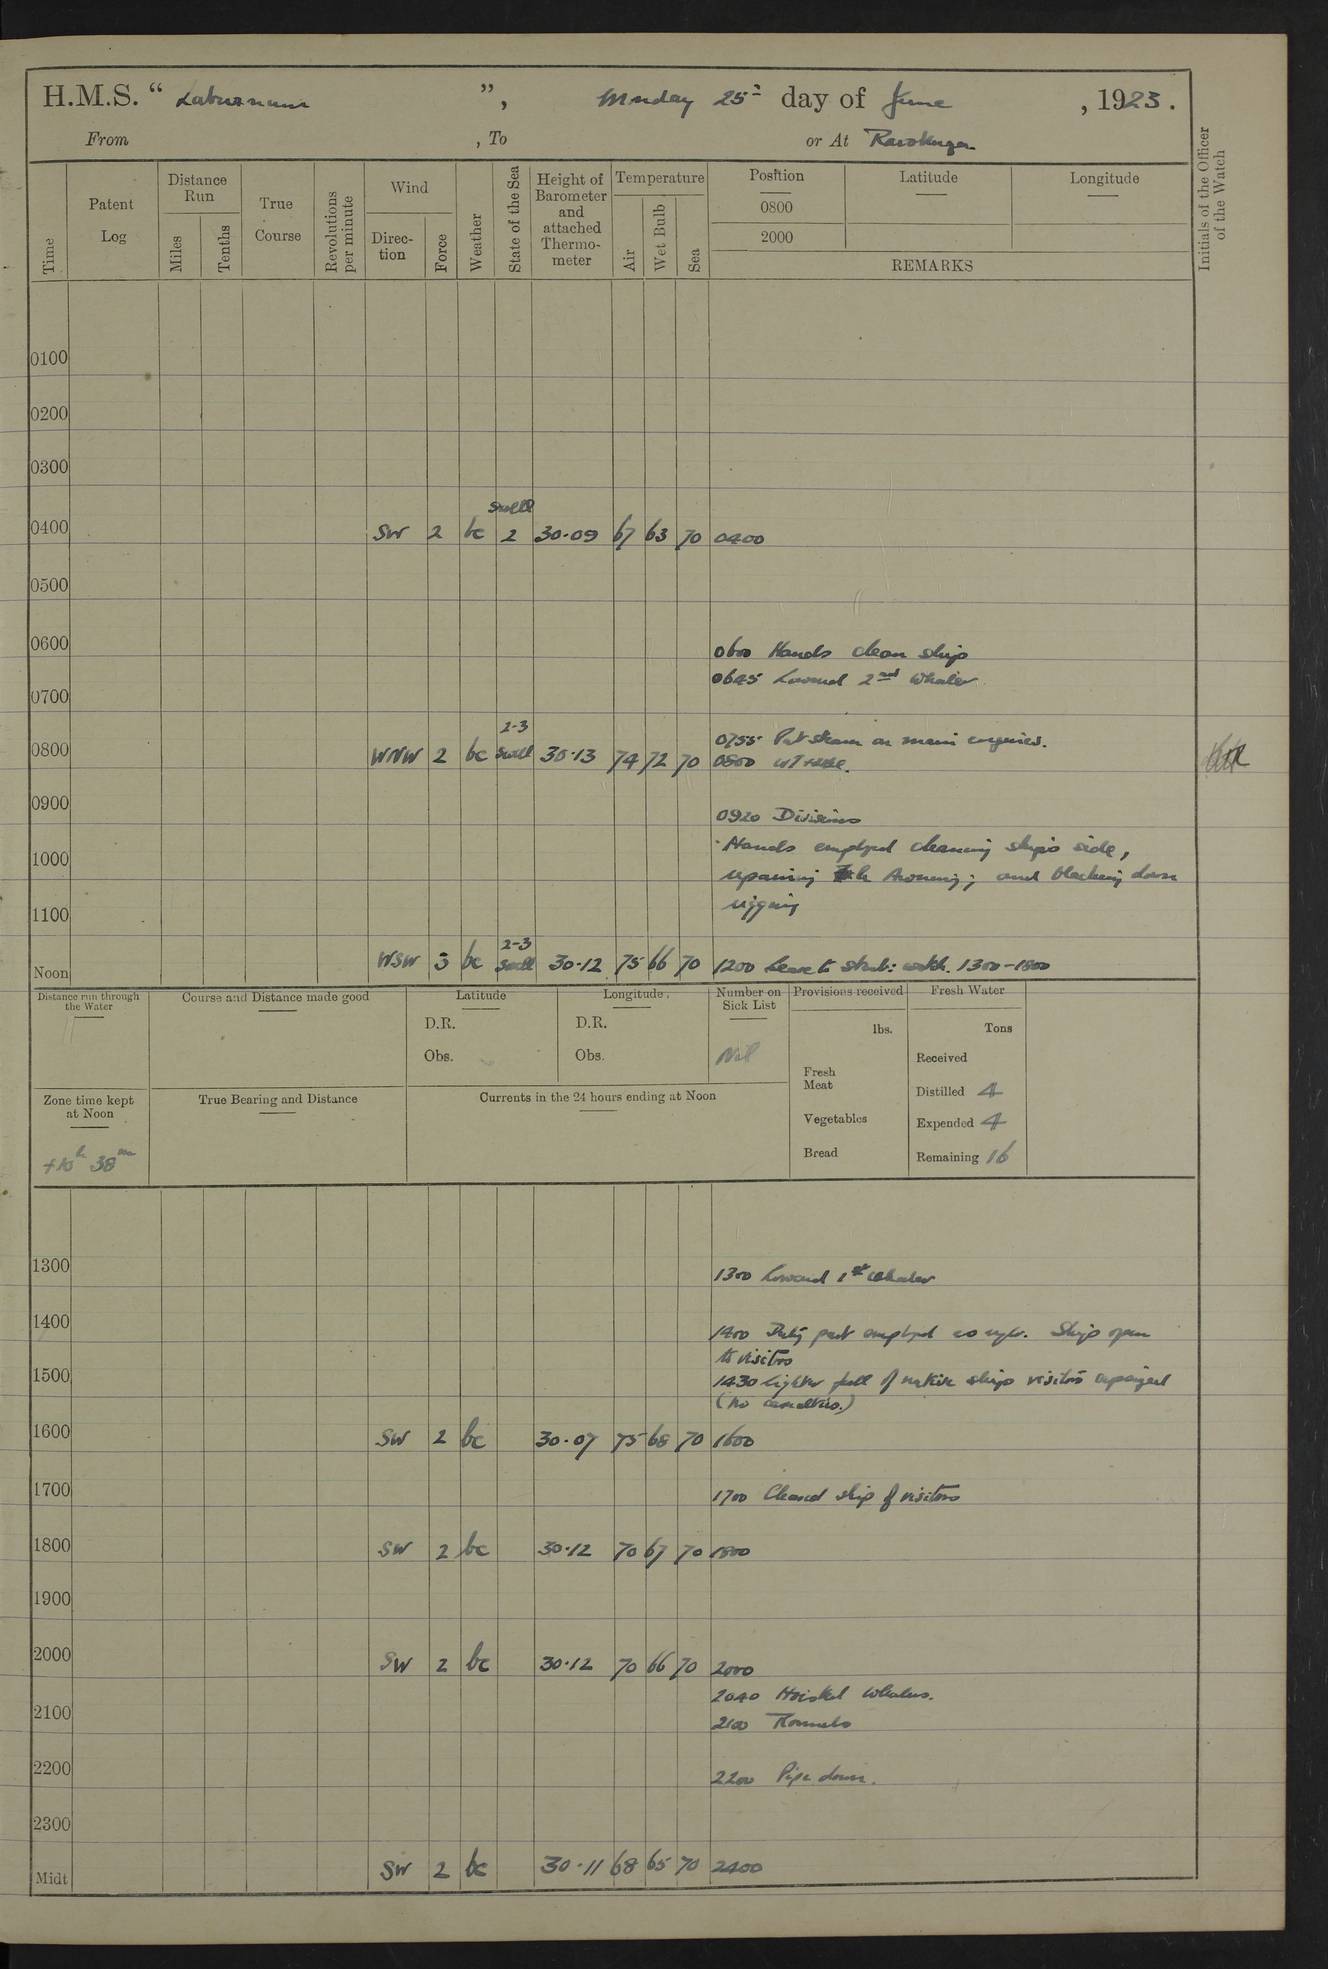 H.M.S. “ Laburnum ”, Monday 25th day of June , 1923.
From , To or At Rarotonga
Time
Patent Log
Distance Run
Miles
Tenths
True Course
Revolutions per minute
Wind
Direc-tion
Force
Weather
State of the Sea
Height of Barometer and attached Thermo-meter
Temperature
Air
Wet Bulb
Sea
Position
0800
2000
Latitude
Longitude
REMARKS
Initials of the Officer of the Watch
0100
0200
0300
swell
0400 SW 2 bc 2 30·09 67 63 70 0400
0500
0600 0600 Hands clean ship
0645 Lowered 2nd Whaler
0700
2-3 0755 Put steam on main engines.
0800 WNW 2 bc swell 30·13 74 72 70 0800
0900
0920 Divisions
Hands employed cleaning ship's side,
1000
repairing Awning; and blacking down
rigging
1100
2-3
Noon WSW 3 bc Swell 30·12 75 66 70 1200 Leave to watch. 1300-1800
Distance run through the Water
Course and Distance made good
Latitude
D.R.
Obs.
Longitude.
D.R.
Obs.
Number on Sick List
Nil
Provisions received
lbs.
Fresh Meat
Vegetables
Bread
Fresh Water
Tons
Received
Distilled 4
Expended 4
Remaining 16
Zone time kept at Noon
+10h 38m
True Bearing and Distance
Currents in the 24 hours ending at Noon
1300 1300 Lowered 1st Whaler
1400 1400 part employed as . Ship open
to visitors
1500 1430 Lighter full of native ship visitors capsized
(No casualties.)
1600 SW 2 bc 30·07 75 68 70 1600
1700 1700 Cleared ship of visitors
1800 SW 2 bc 30·12 70 67 70 1800
1900
2000 SW 2 bc 30·12 70 66 70 2000
2040 Hoisted Whalers.
2100 2100 Rounds
2200 2200 Pipe down.
2300
Midt SW 2 bc 30·11 68 65 70 2400